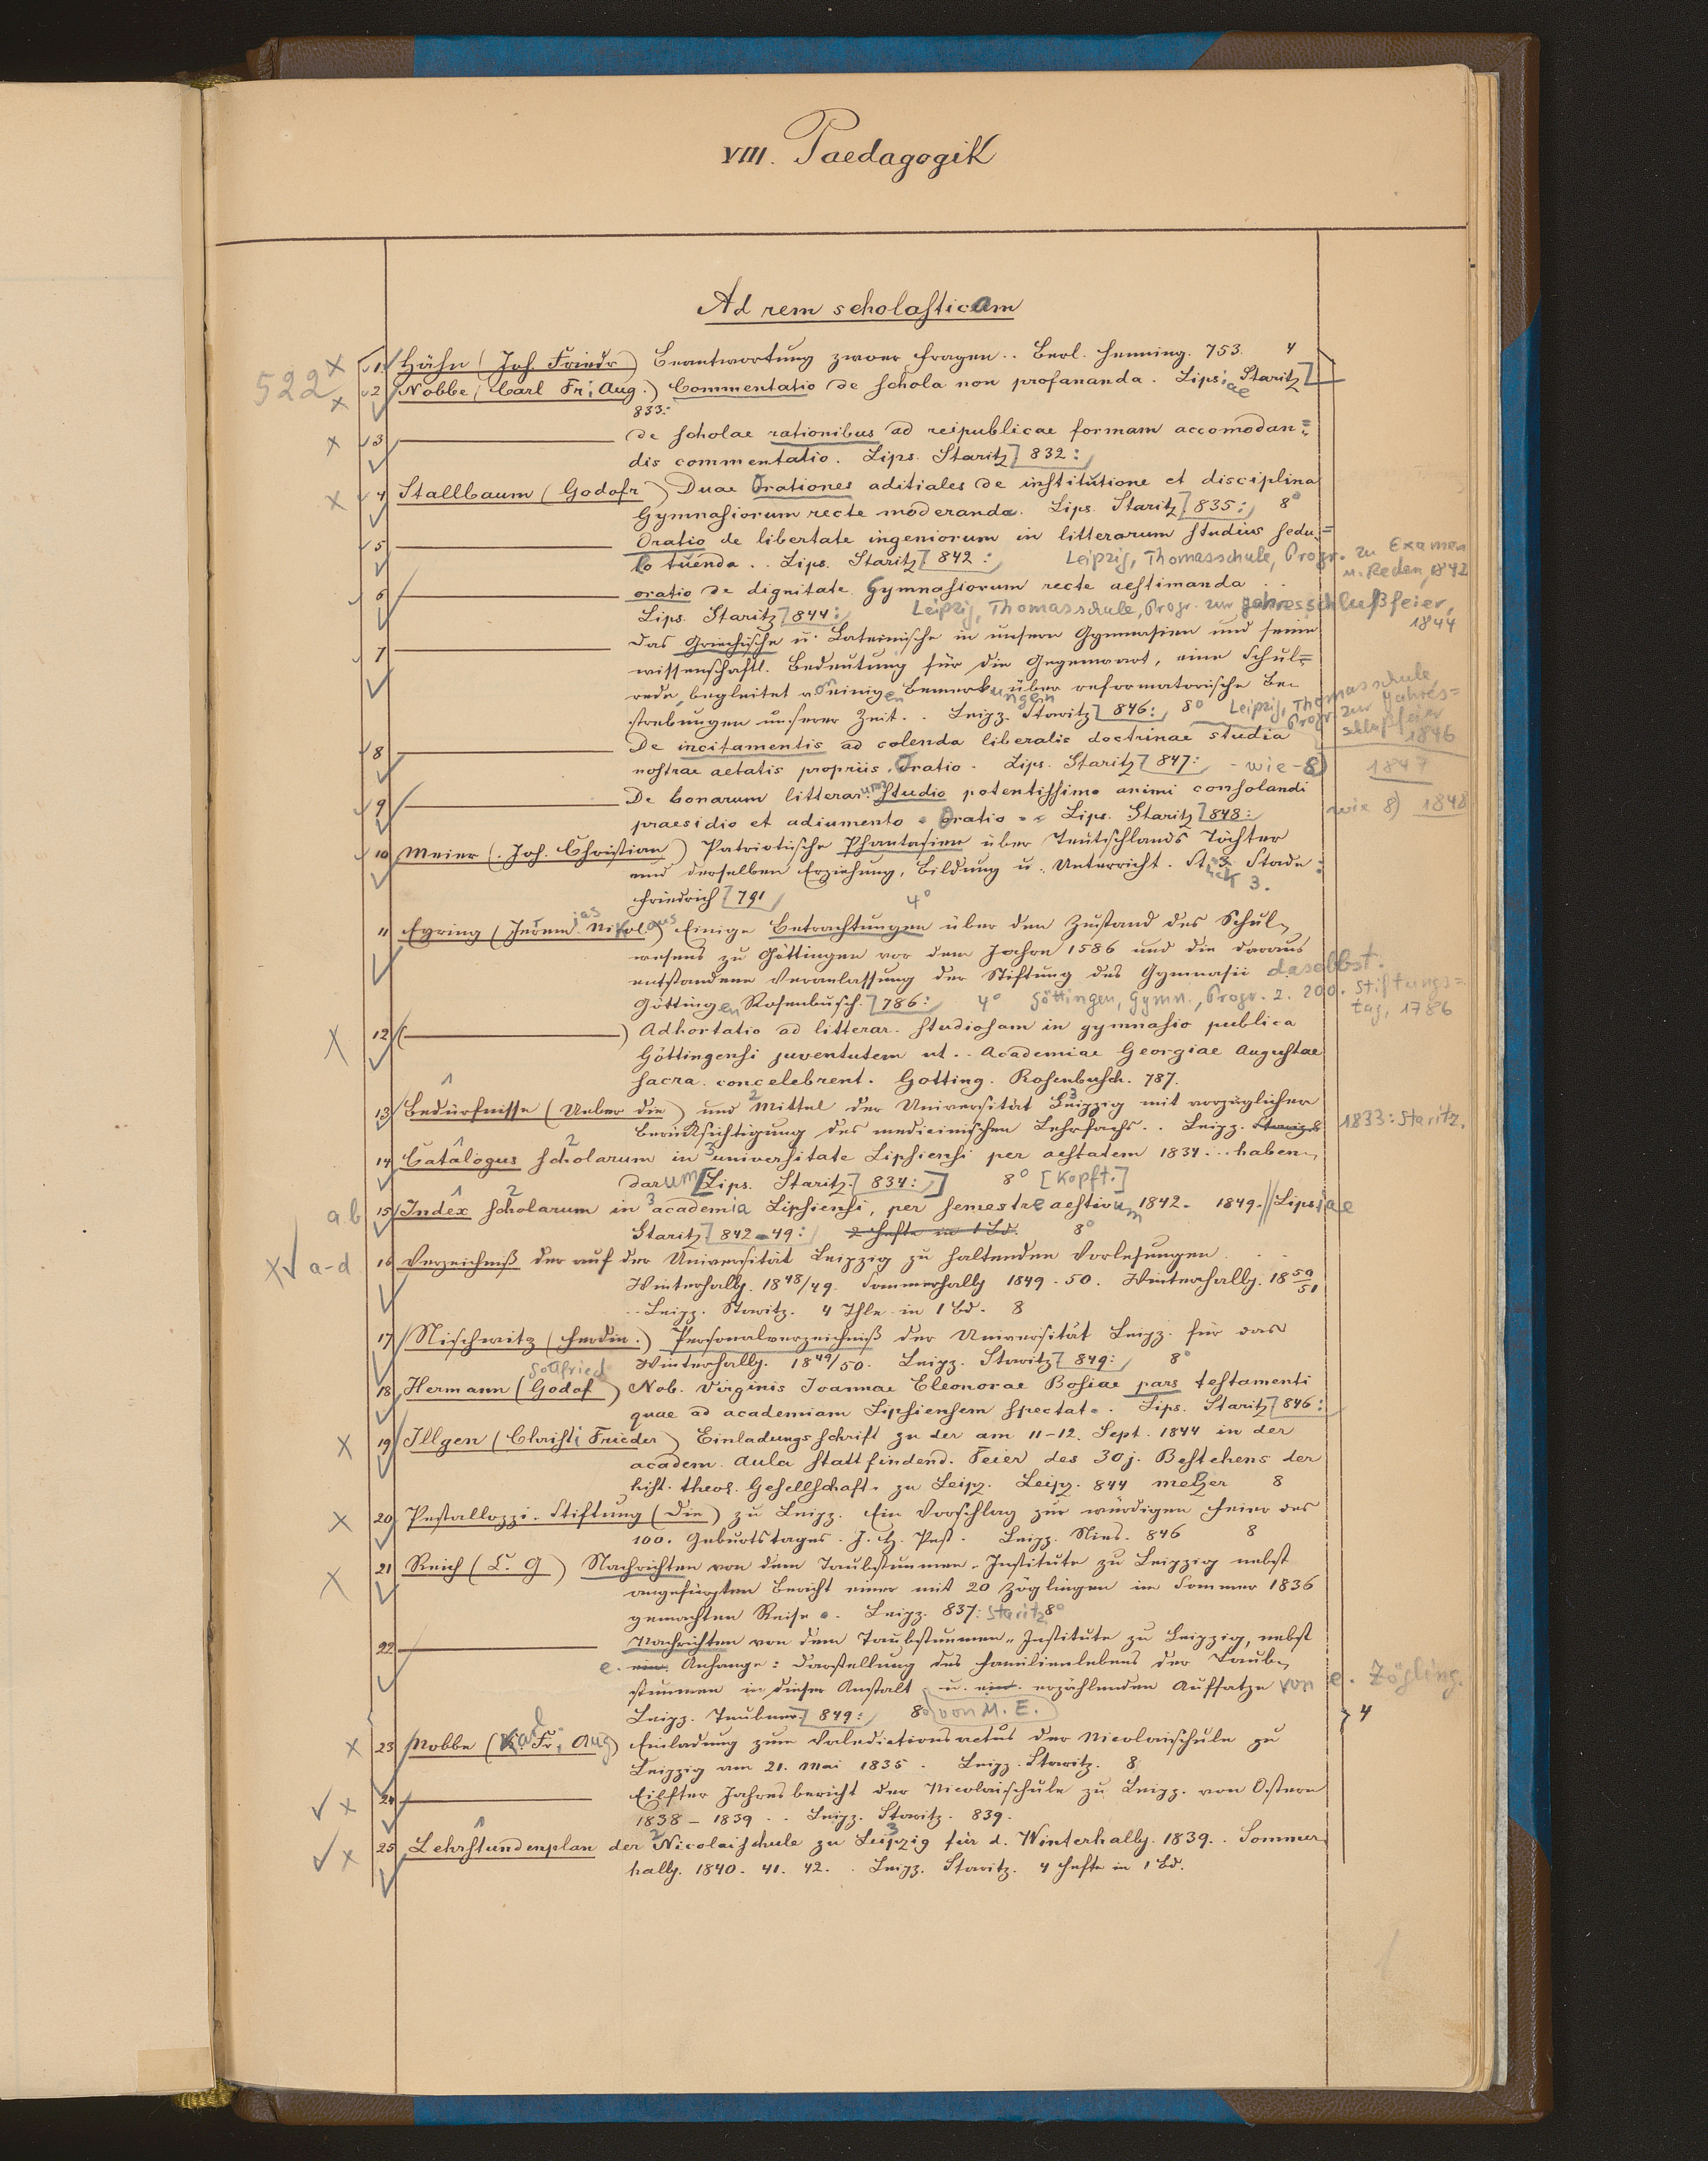 VIII. Paedagogik
Ad rem scholasticam
522
1. Hähn (Joh. Friedr) Beantwortung zwoer Fragen.. Berl. Henning. 753. 4
2 Nobbe (Carl Fr. Aug.) Commentatio de schola non profananda. Lipsiae Staritz
833:
3 de scholae rationibus ad reipublicae formam accomodan=
dis commentatio. Lips. Staritz 832:
4 Stallbaum (Godofr) Duae Orationes aditiales de institutione et disciplina
Gymnasiorum recte moderanda. Lips. Staritz 835: 8°
5 Oratio de libertate ingeniorum in litterarum studiis sedu=
lo tuenda.. Lips. Staritz 842: Leipzig, Thomasschule, Progr. zu Examen
u. Reden, 1842
6 oratio de dignitate Gymnasiorum recte aestimanda..
Lips. Staritz 844: Leipzig, Thomasschule, Progr. zur Jahresschlußfeier,
1844
7 Das Griechische u. Lateinische in unsern Gymnasien und seine
wissenschaftl. Bedeutung für die Gegenwart, eine Schul=
rede, begleitet von einigen Bemerkungen über reformatorische Be-
strebungen unserer Zeit.. Leipz. Staritz 846: 8° Leipzig, Thomasschule,
Progr. zur Jahres=
schlußfeier
1846
8 De incitamentis ad colenda liberalis doctrinae studia
nostrae aetatis propriis. Oratio. Lips. Staritz 847: - wie - 8) 1847
9 De bonarum litterarum studio potentissimo animi consolandi
praesidio et adiumento. Oratio.. Lips. Staritz 848: wie 8) 1848
10 Meier (Joh. Christian) Patriotische Phantasien über Teutschlands Töchter
und derselben Erziehung, Bildung u. Unterricht. Stück 3. Stade:
Friedrich 791 4°
11 Eyring (Jeremias Nikolaus) Einige Betrachtungen über den Zustand des Schul-
wesens zu Göttingen vor dem Jahre 1586 und die daraus
entstandene Veranlassung der Stiftung des Gymnasii daselbst.
Göttingen Rosenbusch. 786: 4° Göttingen, Gymn., Progr. z. 200. Stiftungs=
tag, 1786
12 ( ) Adhortatio ad litterar. studiosam in gymnasio publica
Göttingensi juventutem ut.. Academiae Georgiae Augustae
sacra. concelebrent. Gotting. Rosenbusch. 787.
13 Bedürfnisse (Ueber die) und Mittel der Universität Leipzig mit vorzüglicher
Berücksichtigung des medicinischen Lehrfachs.. Leipz. Staritz 1833: Staritz.
14 Catalogus scholarum in universitate Lipsiensi per aestatem 1834... haben-
darum [Lips. Staritz. 834:] 8° [Kopft.]
a.b 15 Index scholarum in academia Lipsiensi, per semestre aestivum 1842. 1849. // Lipsiae
Staritz 842-49: 2 Hefte in 1 Bd. 8°
a-d 16 Verzeichniß der auf der Universität Leipzig zu haltenden Vorlesungen...
Winterhalbj. 1848/49. Sommerhalbj 1849. 50. Winterhalbj. 1850/51
.. Leipz. Staritz. 4 Thle in 1 Bd. 8
17 Nischwitz (Ferdin.) Personalverzeichniß der Universität Leipz. für das
Winterhalbj. 1849/50. Leipz. Staritz 849: 8°
Gottfried
18 Hermann (Godof) Nob. Virginis Ioannae Eleonorae Bosiae pars testamenti
quae ad academiam Lipsiensem spectat. Lips. Staritz 846:
19 Illgen (Christi Frieder) Einladungsschrift zu der am 11-12. Sept. 1844 in der
academ. Aula stattfindend. Feier des 30j. Bestehens der
hist. theol. Gesellschaft. zu Leipz. Leipz. 844 Melzer 8
20 Pestallozzi-Stiftung (Die) zu Leipz. Ein Vorschlag zur würdigen Feier des
100. Geburtstages. J. H. Pest. Leipz. Nies. 846 8
21 Reich (C. G) Nachrichten von dem Taubstummen-Institute zu Leipzig nebst
angefügten Bericht einer mit 20 Zöglingen im Sommer 1836
gemachten Reise.. Leipz. 837: Staritz 8°
22 Nachrichten von dem Taubstummen-Institute zu Leipzig, nebst
e. ein. Anhange: Darstellung des Familienlebens der Taub-
stummen in dieser Anstalt u. ein. erzählenden Aufsatze von e. Zögling.
Leipz. Teubner. 849: 8° von M. E.
4
23 Nobbe (Karl Fr. Aug) Einladung zum Valedictionsactus der Nicolaischule zu
Leipzig am 21. Mai 1835. Leipz. Staritz. 8
24 Eilfter Jahresbericht der Nicolaischule zu Leipz. von Ostern
1838 - 1839.. Leipz. Staritz. 839.
25 Lehrstundenplan der Nicolaischule zu Leipzig für d. Winterhalbj. 1839.. Sommer
halbj. 1840. 41. 42.. Leipz. Staritz. 4 Hefte in 1 Bd.